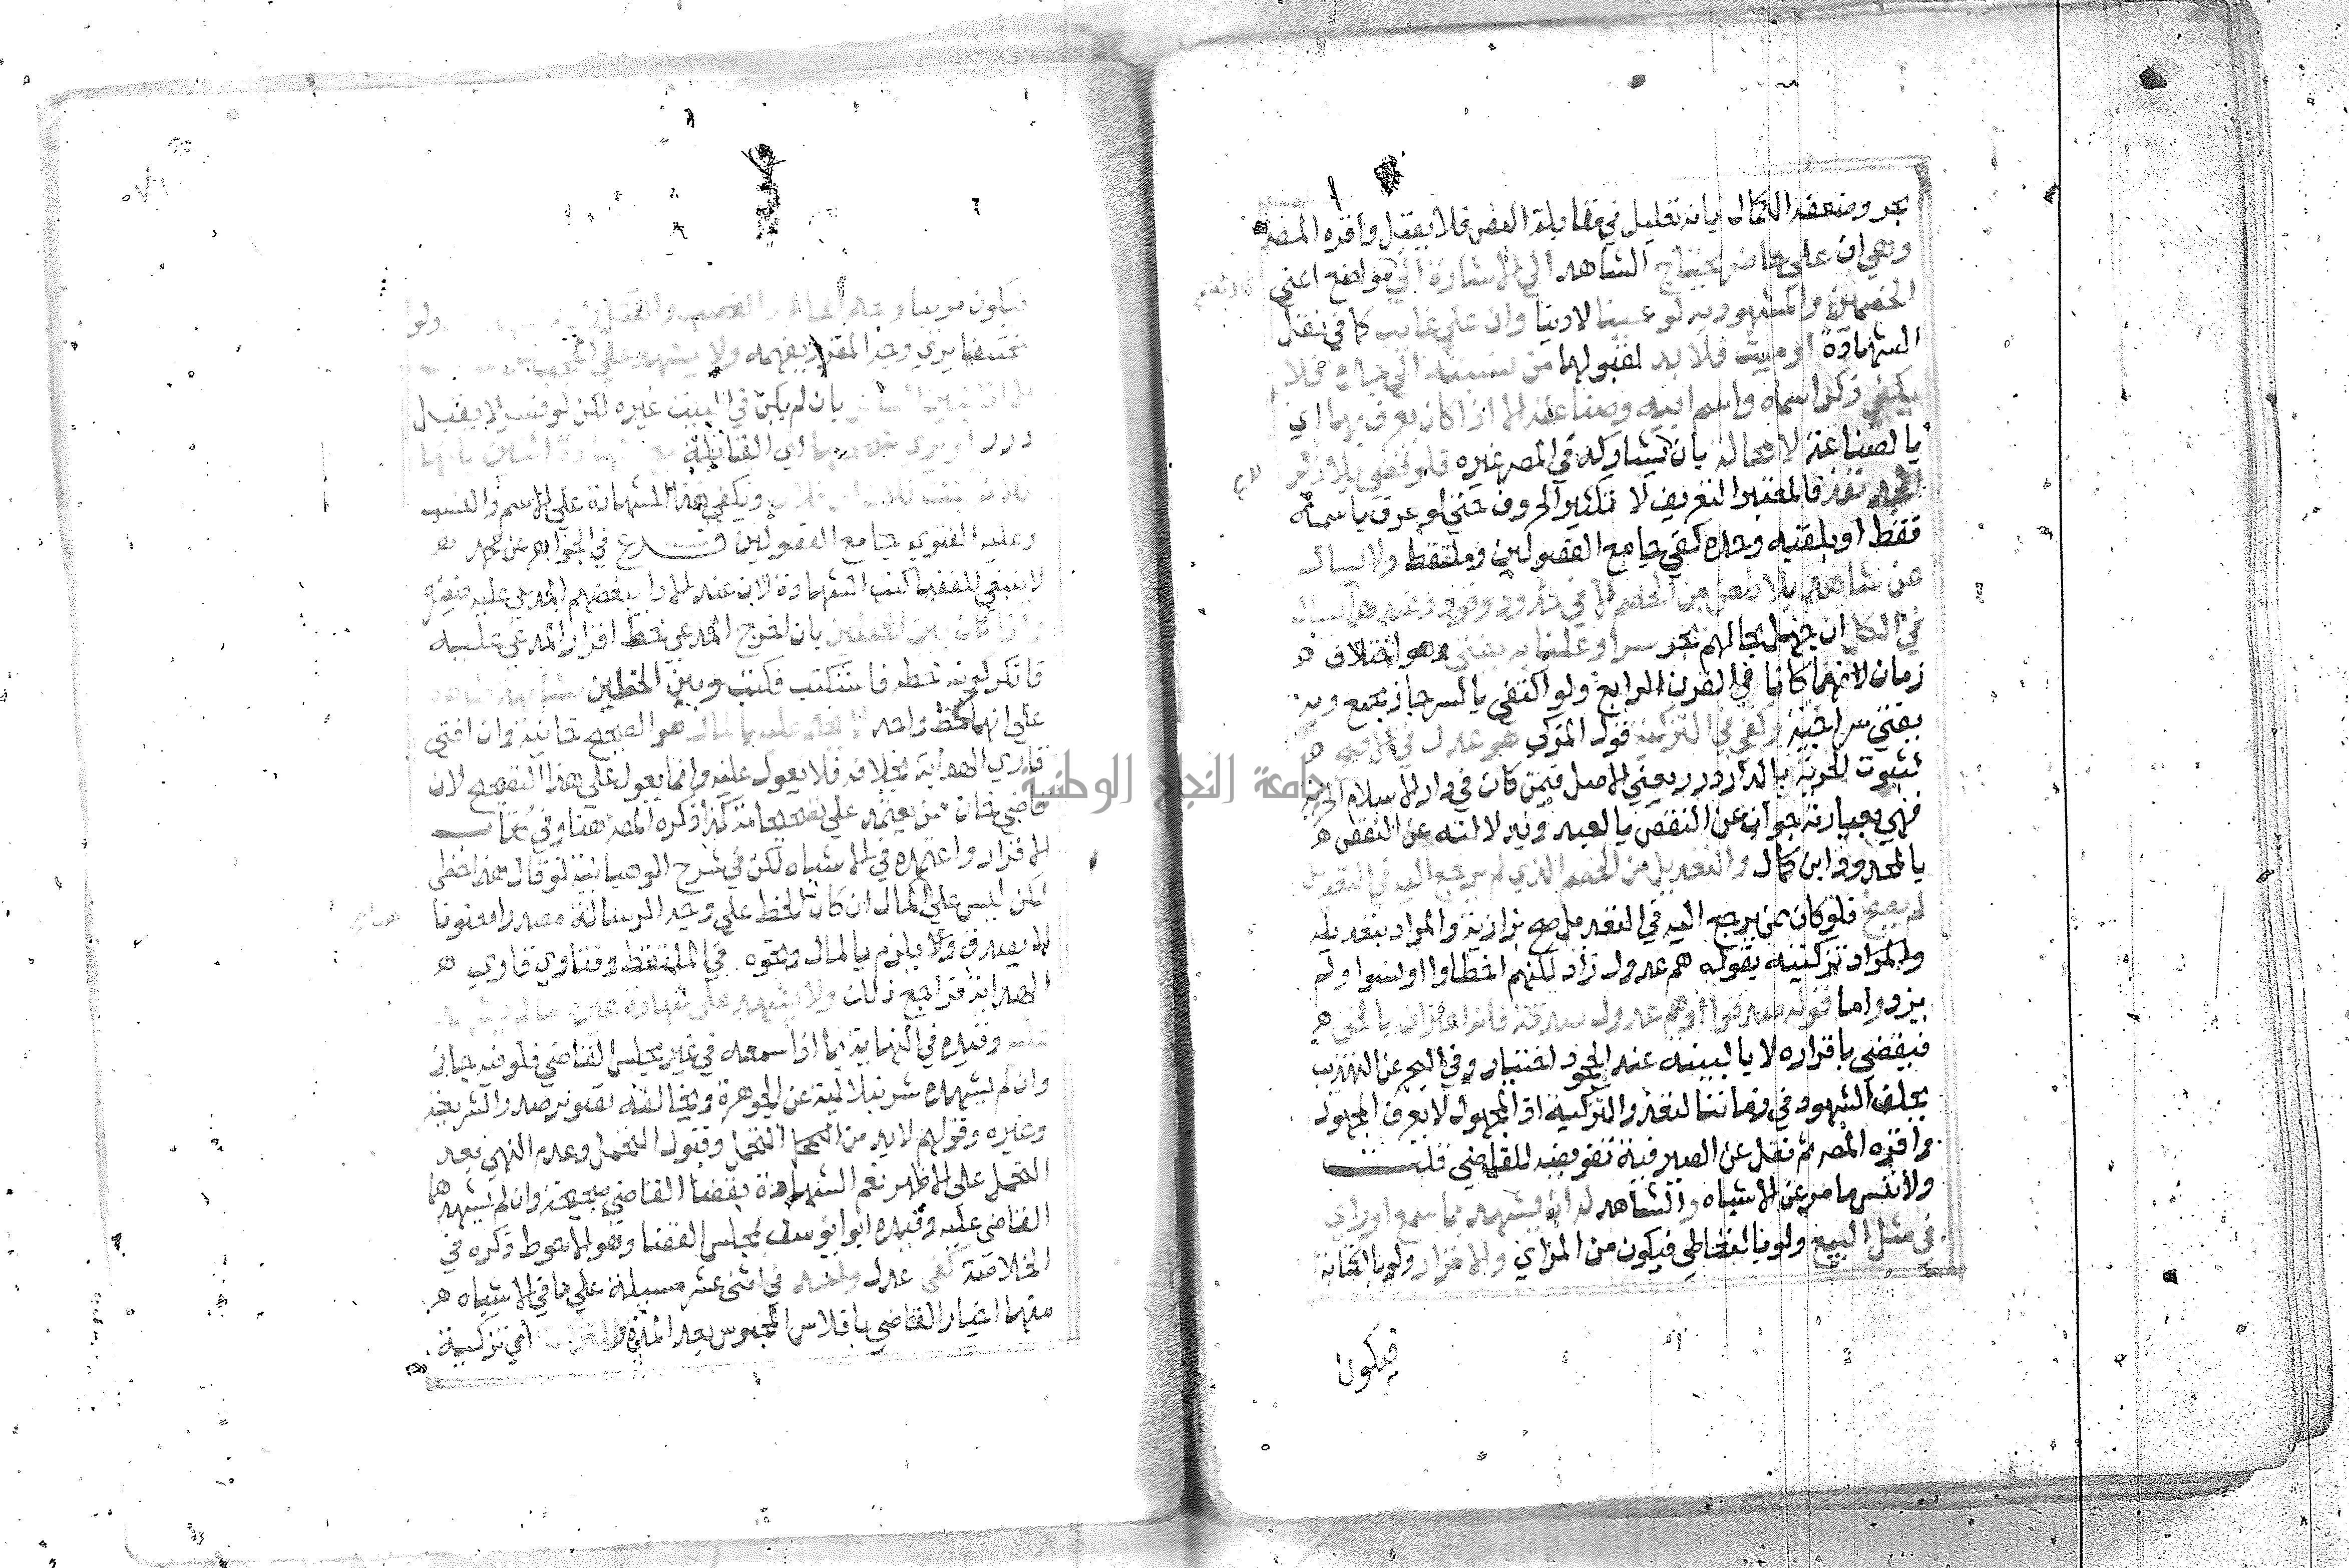 بحر وضعفه الكمال بانه تعليل في مقابلة النص فلا يقبل واقره المصه
وهي ان على حاضر يحتاج الشاهد الى الاشارة الى مواضع اعني
الخصمين والمشهود به لو عينا لا دينا وان على غايب كما في نقل
الشهادة او ميت فلا بد لقبولها من نسبته الى جده فلا
يكفي ذكر اسمه واسم ابيه وصناعته الا اذا كان يعرف بها اي
بالصناعة لا محالة بان لا يشاركه في المصر غيره فلو قضى بلا ذكر
الجد نفذ فالمعتبر التعريف لا تكثير الحروف حتى لو عرف باسمه
فقط او بلقبه وحده كفى جامع الفصولين وملتقط ولا يسال
عن شاهد بلا طعن من الخصم الا في حدود وقود وعندهما يسال
في الكل ان جهل بحالهم بحر سرا وعلنا به يفتى وهو اختلاف ه
زمان لانهما كانا في القرن الرابع ولو اكتفى بالسر جاز مجمع وبه
يفتى سراجية وكفى في التزكية قول المزكي هو عدل في الاصح ه
لثبوت الحرية بالدار درر يعني الاصل فيمن كان في دار الاسلام الحرية
فهي بعبارته جواب عن النقض بالعبد وبدلالته عن النقض ه
بالمحدود ابن كمال والتعديل من الخصم الذي لم يرجع اليه في التعديل
لم يصح فلو كان ممن يرجع اليه في التعديل صح بزازية والمراد بتعديله
والمراد تزكيته بقوله هم عدول زاد لكنهم اخطاوا او نسوا ولم
يزد واما قوله صدقوا او هم عدول صدقة فانه اعتراف بالحق ه
فيقضي باقراره لا بالبينة عند الجحود اختيار وفي البحر عن التهذيب
يحلف الشهود في زماننا لتعذر التزكية اذ المجهول لا يعرف المجهول
واقره المصه ثم نقل عن الصيرفية تفويضه للقاضي قلت
ولا تنس ما مر عن الاشباه والشاهد له ان يشهد بما سمع او راى
في مثل البيع ولو بالتعاطي فيكون من المرءي والاقرار ولو بالكتابة
فيكون
فيكون مرييا وحكم الحاكم والغصب والقتل ولو
مختفيا يرى وجه المقر ويفهمه ولا يشهد على محجب
الا اذا تبين القائل بان لم يكن في البيت غيره لكن لو فسر لا يقبل
درر او يرى شخصها اي القائلة مع شهادة اثنين بانها
فلانة بنت فلان بن فلان ويكفي هذا للشهادة على الاسم والنسب
وعليه الفتوى جامع الفصولين فرع في الجواهر عن محمد ه
لا ينبغي للفقها كتب الشهادة لان عند الادا يبغضهم المدعى عليه فيضره
واذا كان بين الخطين بان اخرج المدعي خط اقرار المدعى عليه
فانكر كونه خطه فاستكتب فكتب وبين الخطين مشابهة ظاهرة
على انهما خط واحد لا يحكم عليه بالمال هو الصحيح خانية وان افتى
قاري الهداية بخلافه فلا يعول عليه وانما يعول على هذا التصحيح لان
قاضي خان من يعتمد على تصحيحاته كذا ذكره المصه هنا وفي كتاب
الاقرار واعتمده في الاشباه لكن في شرح الوهبانية لو قال هذا خطي
لكن ليس علي المال ان كان الخط على وجه الرسالة مصدرا معنونا
لا يصدق ولا يلزم بالمال ونحوه في الملتقط وفتاوى قاري ه
الهداية فراجع ذلك ولا يشهد على شهادة غيره ما لم يشهد
عليه وقيده في النهاية بما اذا سمعه في غير مجلس القاضي فلو فيه جاز
وان لم يشهده شرنبلالية عن الجوهرة ويخالفه تصوير صدر الشريعة
وغيره وقولهم لا بد من التحميل وقبول التحميل وعدم النهي بعد
التحمل على الاظهر نعم الشهادة بقضا القاضي صحيحة وان لم يشهدهما
القاضي عليه وقيده ابو يوسف بمجلس القضا وهو الاحوط ذكره في
الخلاصة كفى عدل واحد في اثنى عشر مسيلة على ما في الاشباه ه
منها اخبار القاضي بافلاس المحبوس بعد المدة والتزكية اي تزكية
جامعة النجاح الوطنية